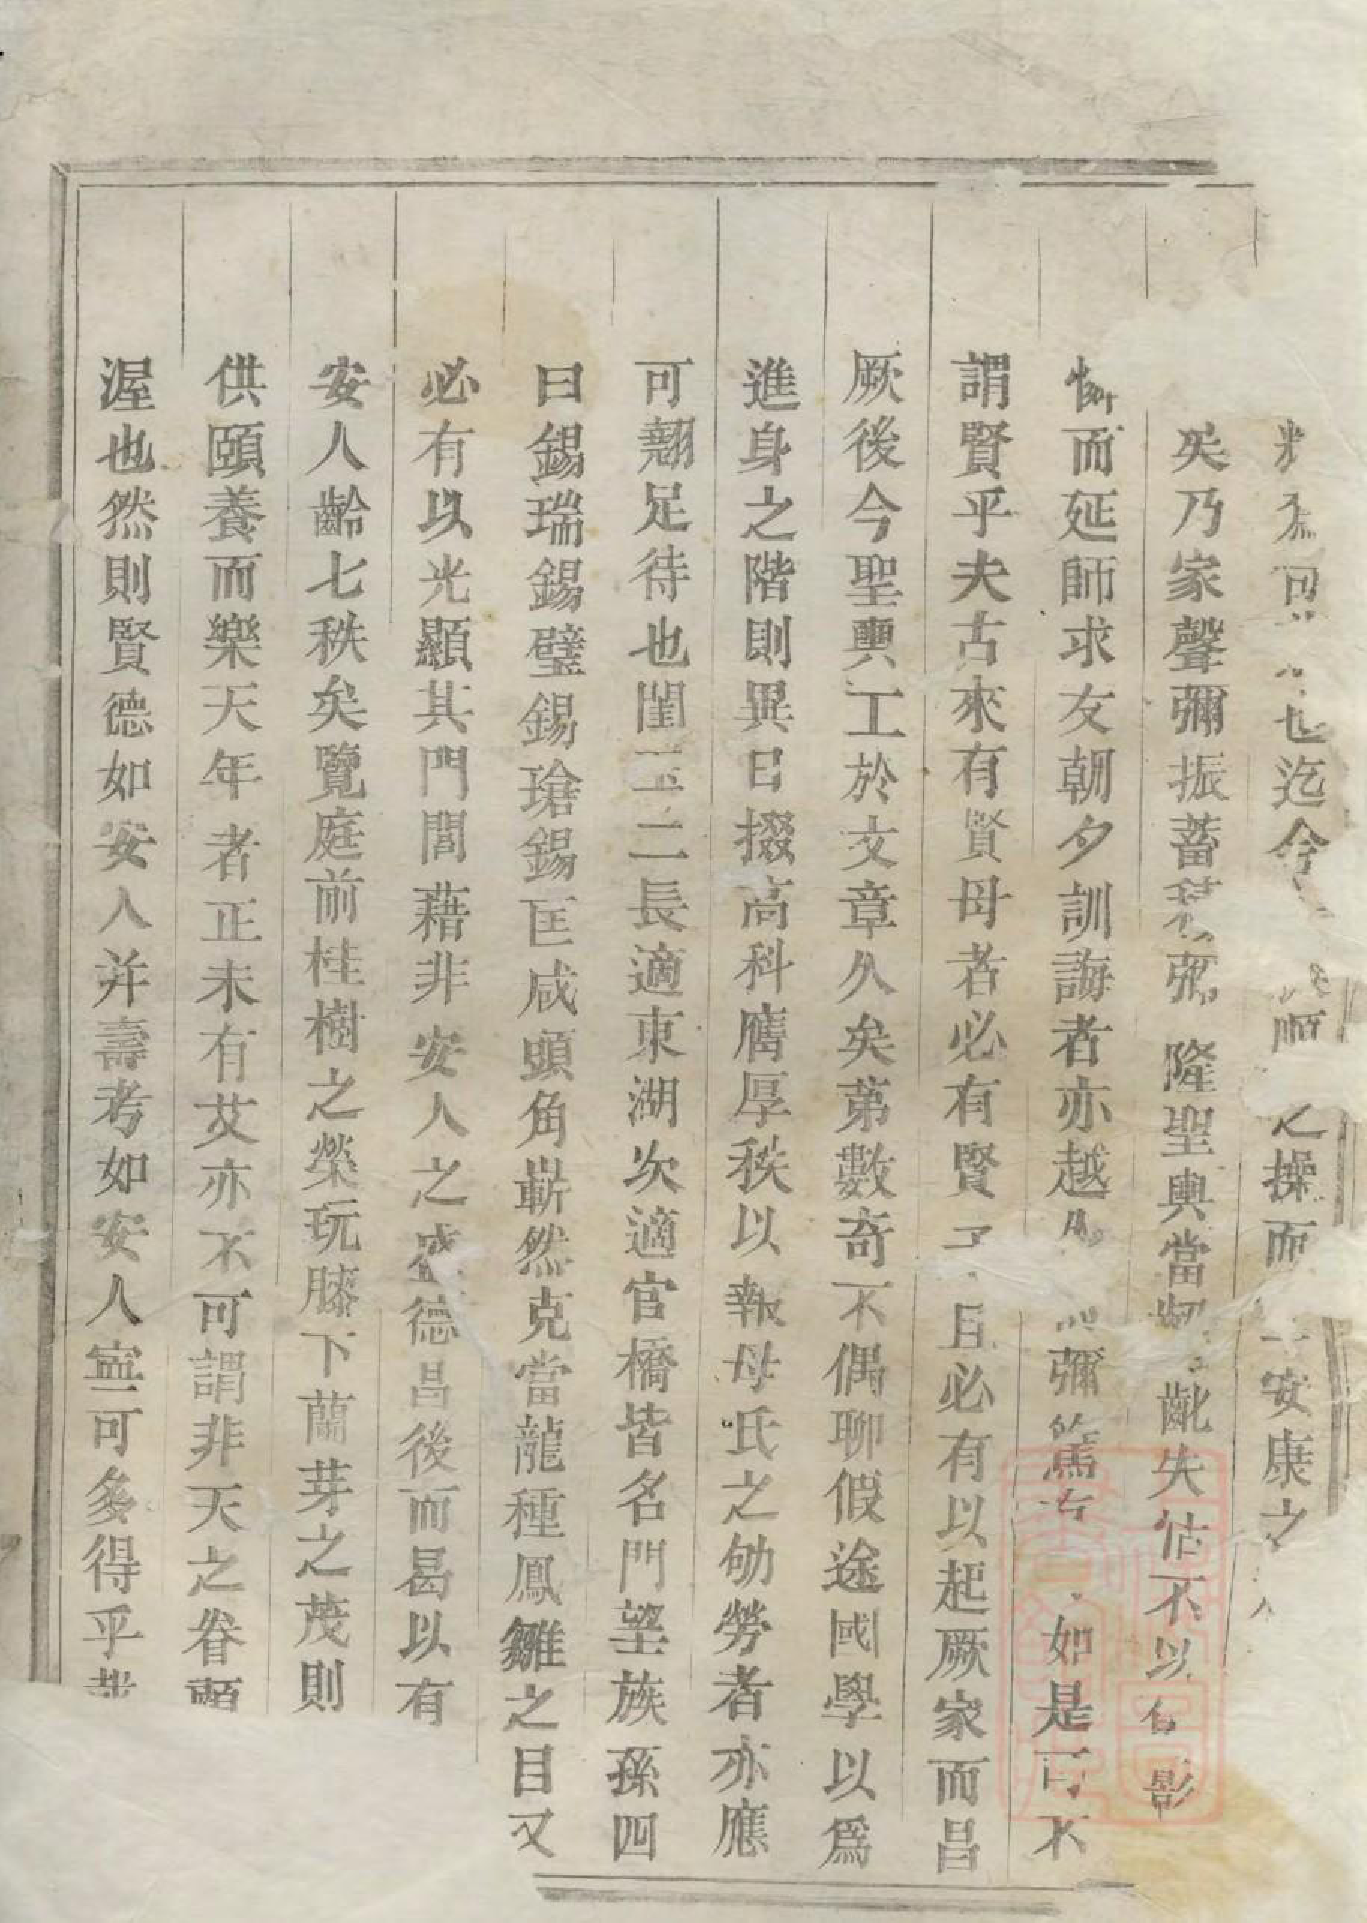 可也迄今順之操而安康之
矣乃家聲彌振蓄積彌隆聖輿當齠齔失怙不以影
憐而延師求友朝夕訓誨者亦越彌篤如是可不
謂賢乎夫古來有賢母者必有賢子且必有以起厥家而昌
厥後今聖輿工於文章久矣苐數奇不偶聊假途國學以爲
進身之階則異日掇高科膺厚秩以報母氏之劬勞者亦應
可翹足待也閨玉二長適東湖次適官橋皆名門望族孫四
曰錫瑞錫璧錫瑲錫匡咸頭角嶄然克當龍種鳳雛之目又
必有以光顯其門閭藉非安人之盛德昌後而曷以有
安人齡七秩矣覽庭前桂樹之榮玩膝下蘭芽之茂則
供頤養而樂天年者正未有艾亦不可謂非天之眷顧
渥也然則賢德如安人并壽考如安人寧可多得乎